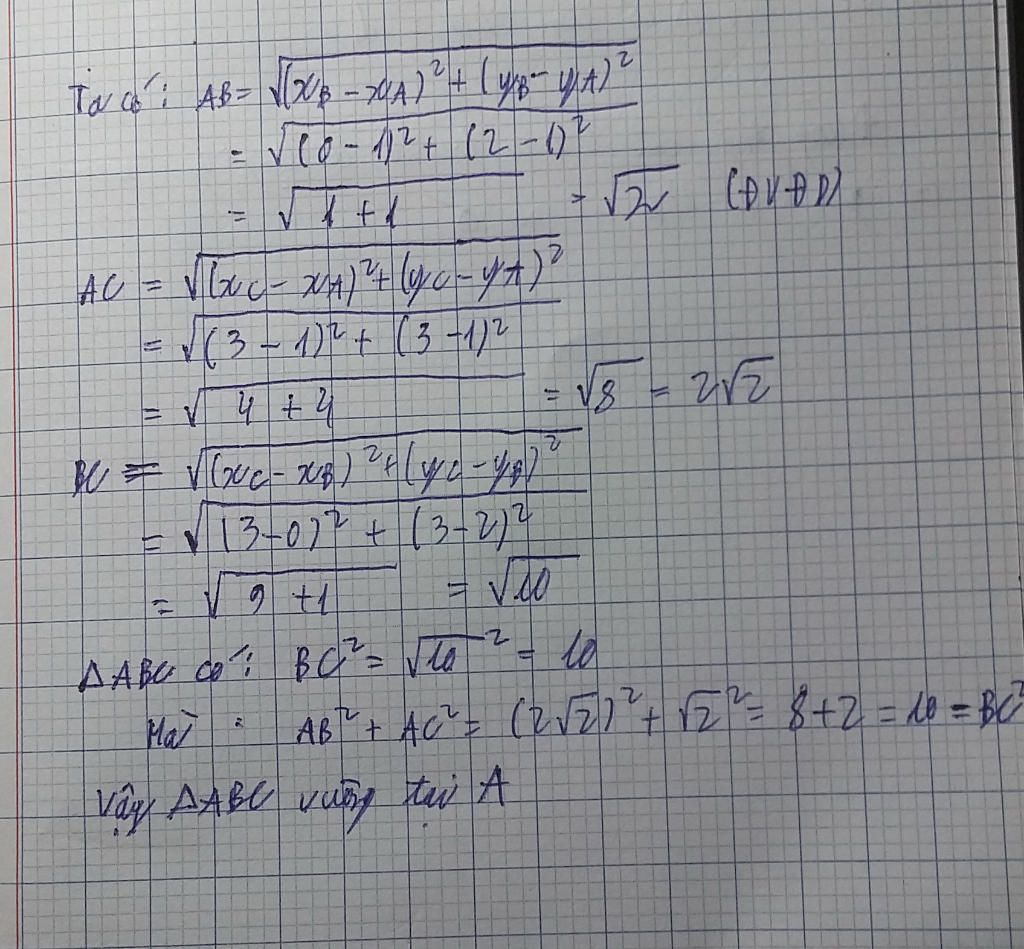 Ta có: AB = √((x_B - x_A)² + (y_B - y_A)²)
= √((0 - 1)² + (2 - 1)²)
= √(1 + 1) = √2 (ĐVĐD)
AC = √((x_C - x_A)² + (y_C - y_A)²)
= √((3 - 1)² + (3 - 1)²)
= √(4 + 4) = √8 = 2√2
BC = √((x_C - x_B)² + (y_C - y_B)²)
= √((3 - 0)² + (3 - 2)²)
= √(9 + 1) = √10
ΔABC có: BC² = √10² = 10
Mà: AB² + AC² = (2√2)² + √2² = 8 + 2 = 10 = BC²
Vậy ΔABC vuông tại A